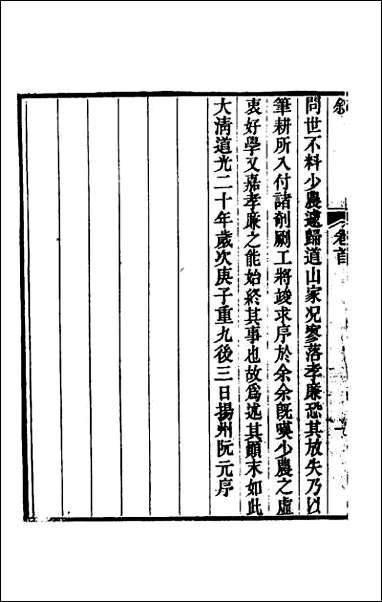 敘
卷首
問世不料少農遽歸道山家况寥落孝廉恐其放失乃以
筆耕所入付諸剞劂工將竣求序於余余既嘆少農之虛
衷好學又嘉孝廉之能始終其事也故爲述其顚末如此
大清道光二十年歲次庚子重九後三日揚州阮元序